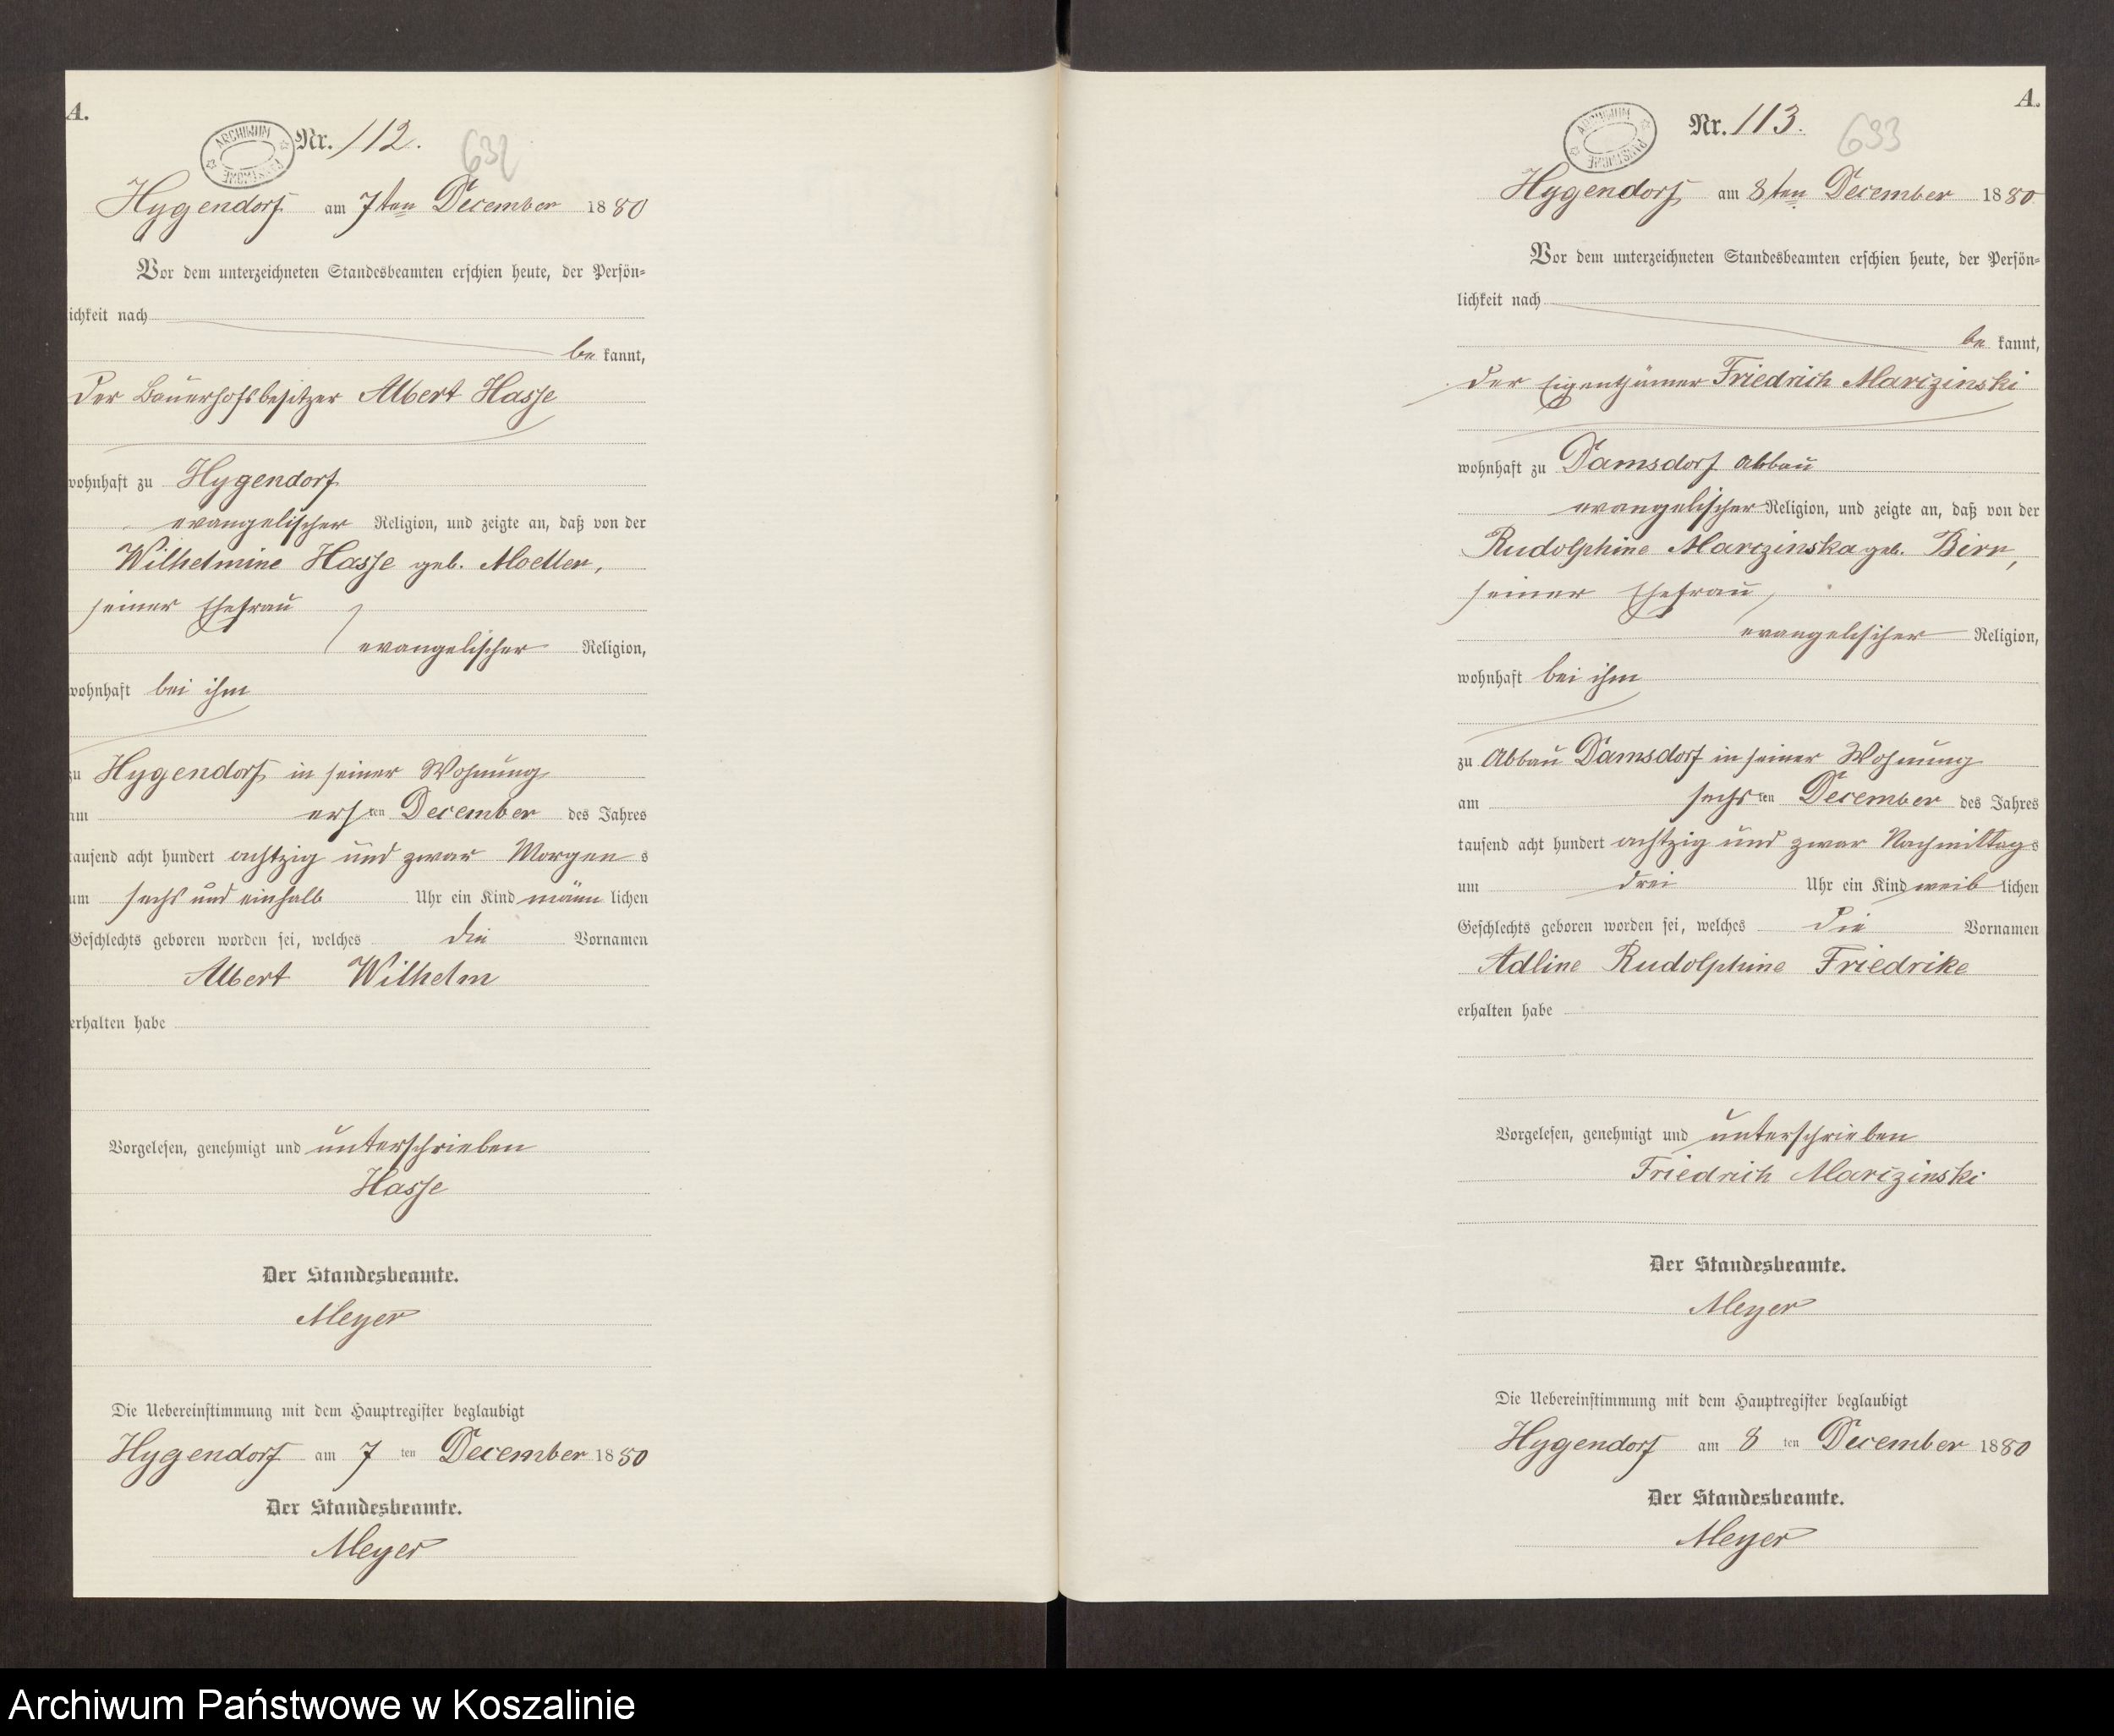 A.
ARCHIWUM PAŃSTWOWE
Nr. 112.
632
Hygendorf am 7ten December 1880
Vor dem unterzeichneten Standesbeamten erschien heute, der Persön-
lichkeit nach
be kannt,
der Bauerhofsbesitzer Albert Hasse
wohnhaft zu Hygendorf
evangelischer Religion, und zeigte an, daß von der
Wilhelmine Hasse geb. Moeller,
seiner Ehefrau
evangelischer Religion,
wohnhaft bei ihm
zu Hygendorf in seiner Wohnung
am ersten December des Jahres
tausend acht hundert achtzig und zwar Morgens
um sechs und einhalb Uhr ein Kind männlichen
Geschlechts geboren worden sei, welches die Vornamen
Albert Wilhelm
erhalten habe
Vorgelesen, genehmigt und unterschrieben
Hasse
Der Standesbeamte.
Meyer
Die Uebereinstimmung mit dem Hauptregister beglaubigt
Hygendorf am 7ten December 1880
Der Standesbeamte.
Meyer
A.
ARCHIWUM PAŃSTWOWE
Nr. 113.
633
Hygendorf am 8ten December 1880
Vor dem unterzeichneten Standesbeamten erschien heute, der Persön-
lichkeit nach
be kannt,
der Eigenthümer Friedrich Marczinski
wohnhaft zu Damsdorf Abbau
evangelischer Religion, und zeigte an, daß von der
Rudolphine Marczinska geb. Birr,
seiner Ehefrau
evangelischer Religion,
wohnhaft bei ihm
zu Abbau Damsdorf in seiner Wohnung
am sechsten December des Jahres
tausend acht hundert achtzig und zwar Nachmittags
um drei Uhr ein Kind weiblichen
Geschlechts geboren worden sei, welches die Vornamen
Adline Rudolphine Friedrike
erhalten habe
Vorgelesen, genehmigt und unterschrieben
Friedrich Marczinski
Der Standesbeamte.
Meyer
Die Uebereinstimmung mit dem Hauptregister beglaubigt
Hygendorf am 8ten December 1880
Der Standesbeamte.
Meyer
Archiwum Państwowe w Koszalinie